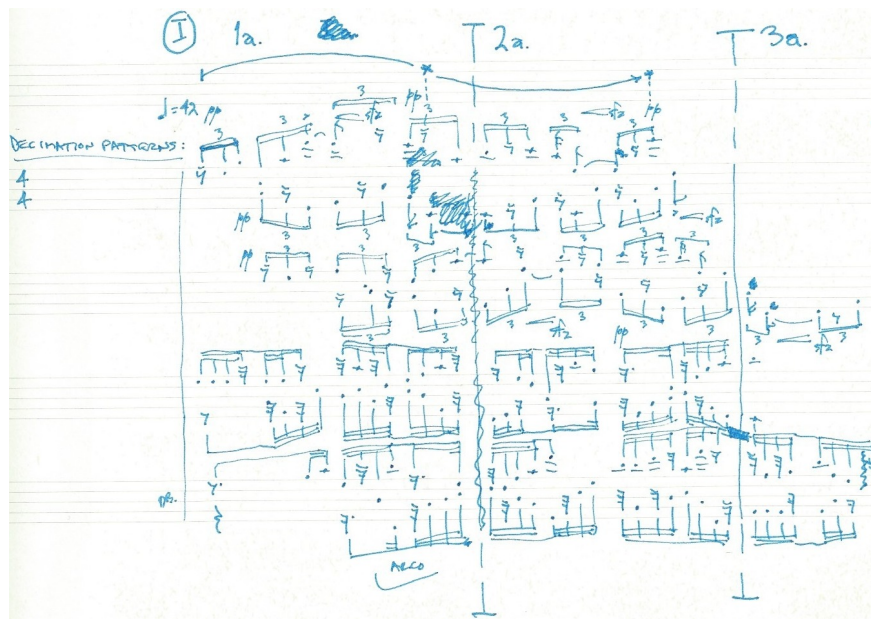 I 1a. 2a. 3a.
♩=42 pp 3 3 3 sfz pp 3 3 3 sfz pp 3
DECIMATION PATTERNS:
4
4
pp 3 3 3 3 3 sfz
pp 3 3 3 3 3
3 3 3 sfz pp 3 3 3 sfz 3
DB.
ARCO